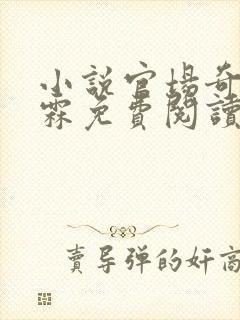 小說官場奇
霖免費閱讀
賣导弹的奸商